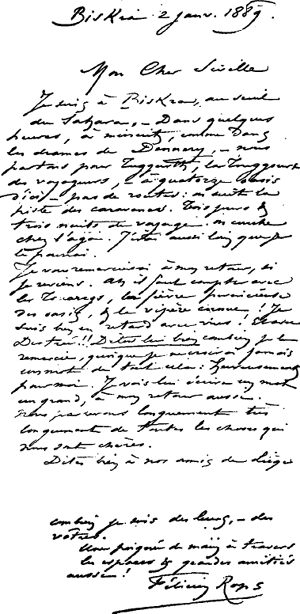 Biskra 2 janv. 1889.
Mon Cher
Je suis à Biskra, au seuil
du Sahara, – Dans quelques
heures, à minuit, comme dans
les drames de Dennery, – nous
partons pour Tuggurth, les Touggourt
des voyageurs, – à quatorze
d'ici, – pas de routes: on suit la
piste des caravanes. Trois jours &
trois nuits de voyage. On couche
chez l'agha.
Je vous remercierai à mon retour, si
je reviens. Ah il faut compter avec
les Touaregs, la fièvre pernicieuse
des oasis, & la vipère cornue! Je
suis bien en retard avec vous!
Destrée!! Dites lui bien combien je le
remercie, quoique je ne crois à jamais
un mot de tout cela: heureusement
pour moi. Je vais lui écrire un mot
un grand, à mon retour aussi.
Nous parlerons longuement très
longuement de toutes les choses qui
nous sont chères.
Dites bien à nos amis de Liège
combien je suis des leurs, – des
vôtres.
Une poignée de main à travers
les espaces & grandes amitiés
aussi!
Félicien Rops